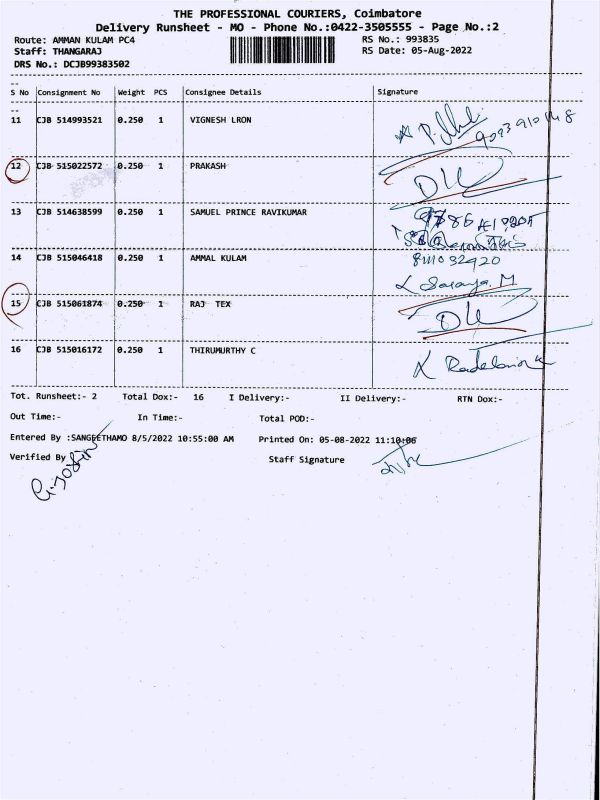 THE PROFESSIONAL COURIERS, Coimbatore
Delivery Runsheet - MO - Phone No.:0422-3505555 - Page No.:2
Route: AMMAN KULAM PC4 RS No.: 993835
Staff: THANGARAJ RS Date: 05-Aug-2022
DRS No.: DCJB99383502
S No Consignment No Weight PCS Consignee Details Signature
11 CJB 514993521 0.250 1 VIGNESH LRON
12 CJB 515022572 0.250 1 PRAKASH
13 CJB 514638599 0.250 1 SAMUEL PRINCE RAVIKUMAR
14 CJB 515046418 0.250 1 AMMAL KULAM
Saranya. M
15 CJB 515061874 0.250 1 RAJ TEX
16 CJB 515016172 0.250 1 THIRUMURTHY C
Tot. Runsheet:- 2 Total Dox:- 16 I Delivery:- II Delivery:- RTN Dox:-
Out Time:- In Time:- Total POD:-
Entered By :SANGEETHAMO 8/5/2022 10:55:00 AM Printed On: 05-08-2022 11:10:06
Verified By Staff Signature